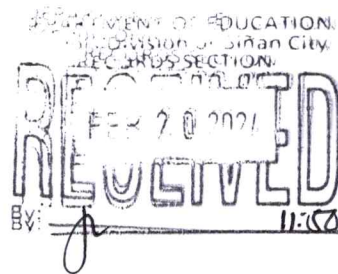 DEPARTMENT OF EDUCATION
Division of Biñan City
RECORDS SECTION
RECEIVED
FEB 20 2024
BY:
BY:
11:50